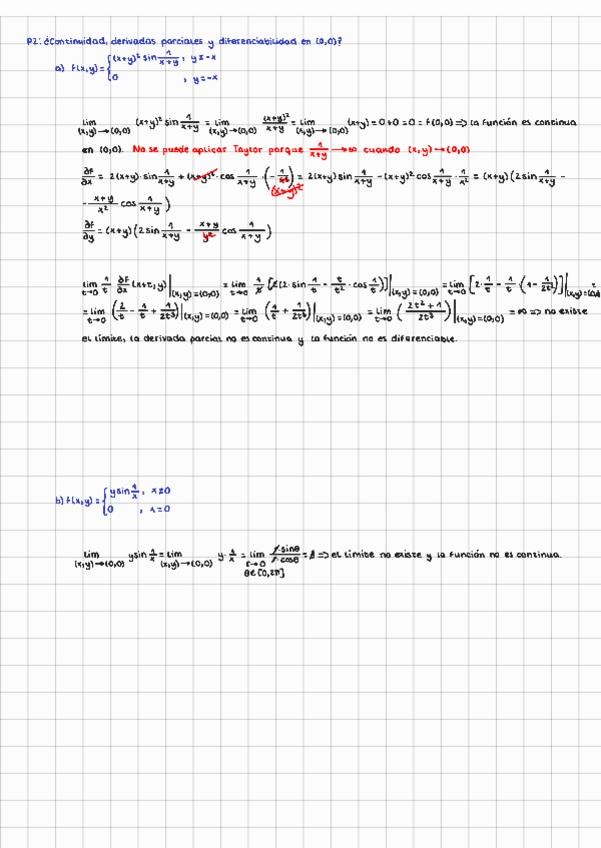 P2: ¿Continuidad, derivadas parciales y diferenciabilidad en (0,0)?
a) f(x,y) = { (x+y)² sin 1/(x+y), y≠-x
0, y=-x
lim (x,y)→(0,0) (x+y)² sin 1/(x+y) = lim (x,y)→(0,0) (x+y)²/(x+y) = lim (x,y)→(0,0) (x+y) = 0+0 = 0 = f(0,0) ⇒ la función es continua
en (0,0). No se puede aplicar Taylor porque 1/(x+y) → ∞ cuando (x,y)→(0,0)
∂f/∂x = 2(x+y)·sin 1/(x+y) + (x+y)²·cos 1/(x+y)·(-1/x²) (x+y)² = 2(x+y) sin 1/(x+y) - (x+y)² cos 1/(x+y)·1/x² = (x+y)(2 sin 1/(x+y) -
- (x+y)/x² cos 1/(x+y))
∂f/∂y = (x+y)(2 sin 1/(x+y) - (x+y)/y² cos 1/(x+y))
lim t→0 1/t ∂f/∂x (x+t,y)|(x,y)=(0,0) = lim t→0 1/t [t(2·sin 1/t - t/t²·cos 1/t)]|(x,y)=(0,0) = lim t→0 [2·1/t - 1/t·(1-1/2t²)]|(x,y)=(0,0) =
= lim t→0 (2/t - 1/t + 1/2t³)|(x,y)=(0,0) = lim t→0 (1/t + 1/2t³)|(x,y)=(0,0) = lim t→0 ((2t²+1)/2t³)|(x,y)=(0,0) = ∞ ⇒ no existe
el límite, la derivada parcial no es continua y la función no es diferenciable.
b) f(x,y) = { y sin 1/x, x≠0
0, x=0
lim (x,y)→(0,0) y sin 1/x = lim (x,y)→(0,0) y·1/x = lim r→0 θ∈[0,2π] r·sinθ/r·cosθ = ∄ ⇒ el límite no existe y la función no es continua.